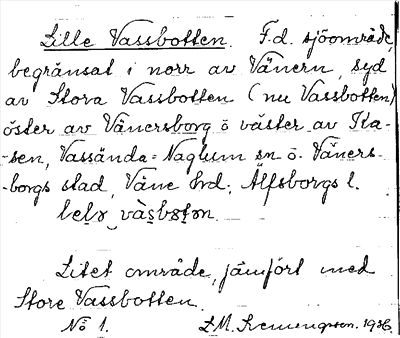 Lille Vassbotten. F.d. sjöområde,
begränsat i norr av Vänern, syd
av Stora Vassbotten (nu Vassbotten)
öster av Vänersborg o väster av Ka-
-sen, Vassända-Naglum sn o. Väners-
-borgs stad, Väne hrd; Älfsborgs l.
Litet område, jämfört med
Store Vassbotten.
No 1. 1936.